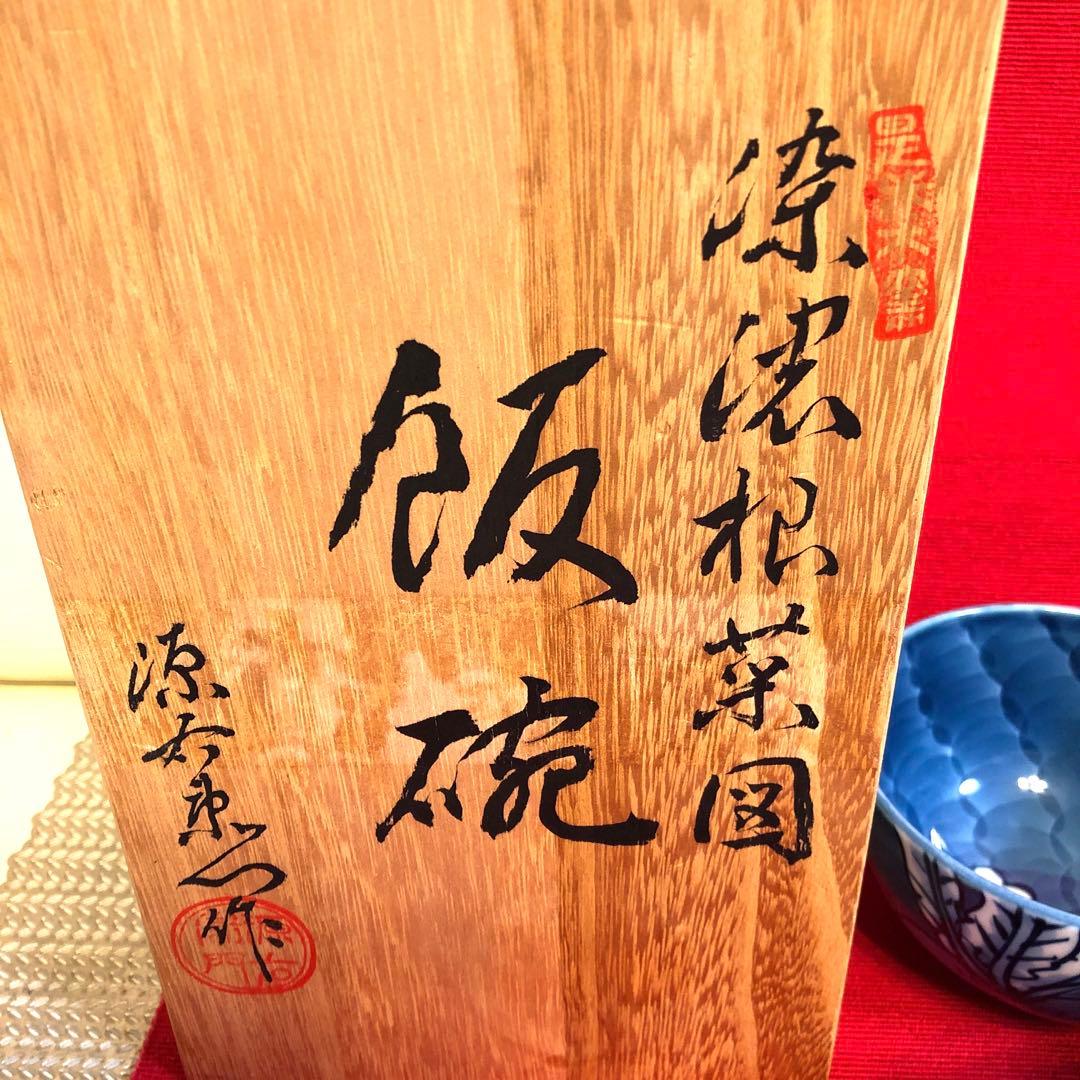 染濃根菜図
飯碗
源右衛門作